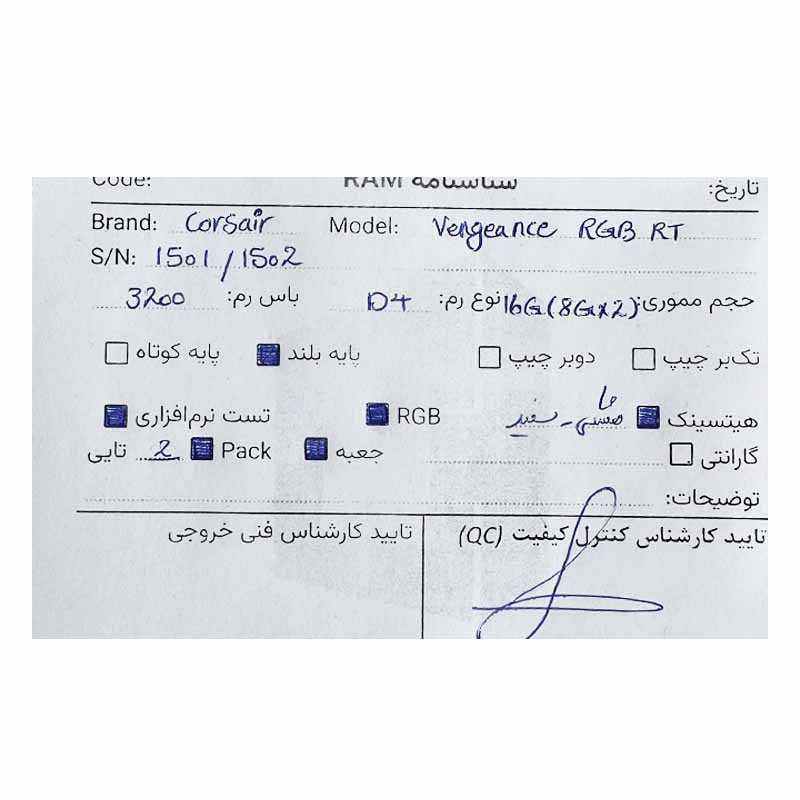 تاریخ: شناسنامه RAM Code:
Brand: Corsair Model: Vengeance RGB RT
S/N: 1501/1502
حجم مموری: 16G(8G×2) نوع رم: D4 باس رم: 3200
تک‌بر چیپ دوبر چیپ پایه بلند پایه کوتاه
هیتسینک مشکی - سفید RGB تست نرم‌افزاری
گارانتی جعبه Pack 2 تایی
توضیحات:
تایید کارشناس کنترل کیفیت (QC) تایید کارشناس فنی خروجی